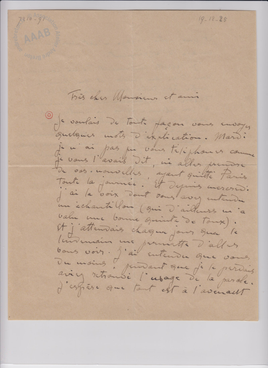 19.12.25
AAAB
Très cher Monsieur et ami
Je voulais de toute façon vous envoyer
quelques mots d'explication. Mardi
je n'ai pas pu vous téléphoner comme
je vous l'avais dit, ni aller prendre
de vos nouvelles, ayant quitté Paris
toute la journée. Et depuis mercredi
j'ai la voix dont vous avez entendu
un échantillon (qui d'ailleurs m'a
valu une bonne quinte de toux).
Et j'attendais chaque jour que le
lendemain me permette d'aller
vous voir. J'ai entendu que vous
du moins, pendant que je la perdais
aviez retrouvé l'usage de la parole.
J'espère que tout est à l'avenant